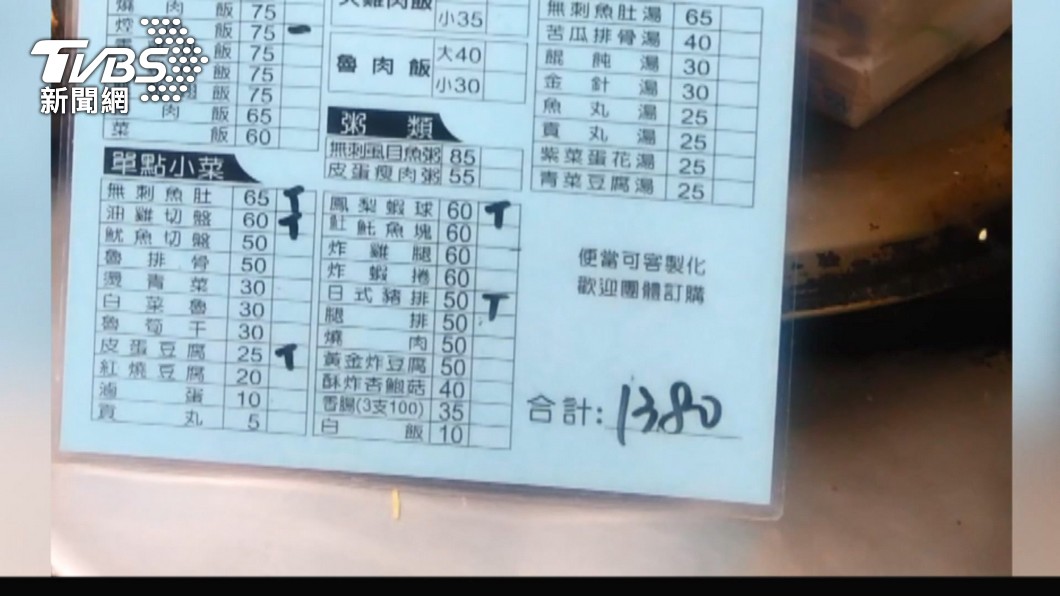 TVBS
新聞網
燒肉飯 75
飯 75
飯 75
飯 75
飯 75
肉飯 65
菜飯 60
單點小菜
無刺魚肚 65 T
油雞切盤 60 T
魷魚切盤 50
魯排骨 50
燙青菜 30
白菜魯 30
魯筍干 30
皮蛋豆腐 25 T
紅燒豆腐 20
滷蛋 10
貢丸 5
火雞肉飯
小35
魯肉飯 大40
小30
粥類
無刺虱目魚粥 85
皮蛋瘦肉粥 55
鳳梨蝦球 60 T
魟魠魚塊 60
炸雞腿 60
炸蝦捲 60
日式豬排 50 T
腿排 50
燒肉 50
黃金炸豆腐 50
酥炸杏鮑菇 40
香腸(3支100) 35
白飯 10
無刺魚肚湯 65
苦瓜排骨湯 40
餛飩湯 30
金針湯 30
魚丸湯 25
貢丸湯 25
紫菜蛋花湯 25
青菜豆腐湯 25
便當可客製化
歡迎團體訂購
合計: 1380